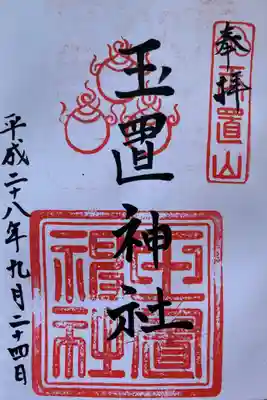 奉拝
玉置山
玉置神社
玉置神社
平成二十八年九月二十四日